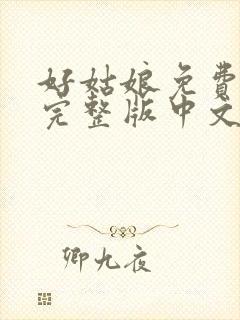 好姑娘免費
完整版中文
卿九夜